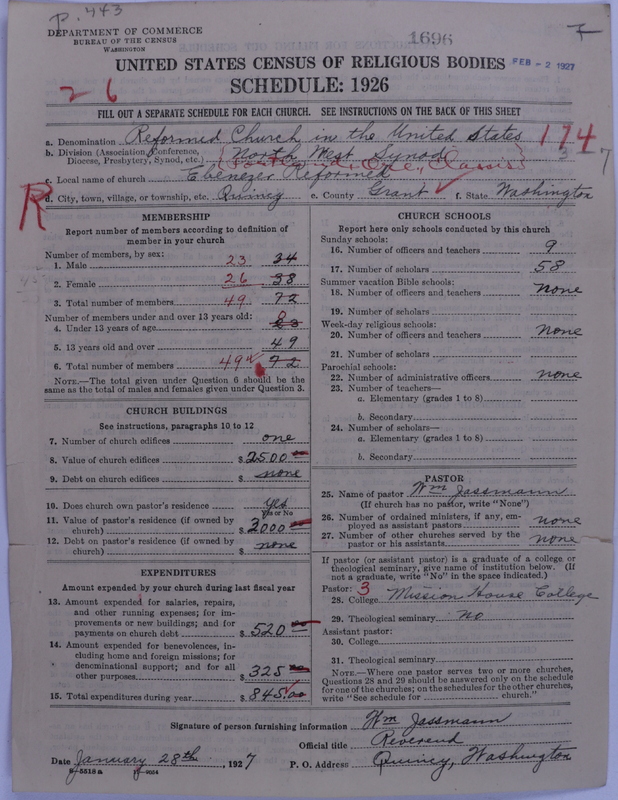 P. 443
DEPARTMENT OF COMMERCE
BUREAU OF THE CENSUS
WASHINGTON
1696
UNITED STATES CENSUS OF RELIGIOUS BODIES
FEB - 2 1927
SCHEDULE: 1926
26
FILL OUT A SEPARATE SCHEDULE FOR EACH CHURCH. SEE INSTRUCTIONS ON THE BACK OF THIS SHEET
a. Denomination Reformed Church in the United States
114
b. Division (Association, Conference, Diocese, Presbytery, Synod, etc.) North West Synod
3 7
c. Local name of church Ebenezer Reformed
R
d. City, town, village, or township, etc. Quincy e. County Grant f. State Washington
MEMBERSHIP
Report number of members according to definition of
member in your church
Number of members, by sex:
1. Male 23 34
2. Female 26 38
3. Total number of members 49 72
Number of members under and over 13 years old:
4. Under 13 years of age 0 23
5. 13 years old and over 49
6. Total number of members 49 72
NOTE.—The total given under Question 6 should be the
same as the total of males and females given under Question 3.
CHURCH BUILDINGS
See instructions, paragraphs 10 to 12
7. Number of church edifices one
8. Value of church edifices $ 2500 00
9. Debt on church edifices $ none
10. Does church own pastor's residence yes
Yes or No
11. Value of pastor's residence (if owned by
church) $ 2000 00
12. Debt on pastor's residence (if owned by
church) $ none
EXPENDITURES
Amount expended by your church during last fiscal year
13. Amount expended for salaries, repairs,
and other running expenses; for im-
provements or new buildings; and for
payments on church debt $ 520
14. Amount expended for benevolences, in-
cluding home and foreign missions; for
denominational support; and for all
other purposes $ 325 00
15. Total expenditures during year $ 845.00
CHURCH SCHOOLS
Report here only schools conducted by this church
Sunday schools:
16. Number of officers and teachers 9
17. Number of scholars 58
Summer vacation Bible schools:
18. Number of officers and teachers none
19. Number of scholars
Week-day religious schools:
20. Number of officers and teachers none
21. Number of scholars
Parochial schools:
22. Number of administrative officers none
23. Number of teachers—
a. Elementary (grades 1 to 8)
b. Secondary
24. Number of scholars—
a. Elementary (grades 1 to 8)
b. Secondary
PASTOR
25. Name of pastor Wm Jassmann
(If church has no pastor, write "None")
26. Number of ordained ministers, if any, em-
ployed as assistant pastors none
27. Number of other churches served by the
pastor or his assistants none
If pastor (or assistant pastor) is a graduate of a college or
theological seminary, give name of institution below. (If
not a graduate, write "No" in the space indicated.)
Pastor: 3
28. College Mission House College
29. Theological seminary no
Assistant pastor:
30. College
31. Theological seminary
NOTE.—Where one pastor serves two or more churches,
Questions 28 and 29 should be answered only on the schedule
for one of the churches; on the schedules for the other churches,
write "See schedule for church."
Signature of person furnishing information Wm Jassmann
Official title Reverend
Date January 28th, 1927 P. O. Address Quincy, Washington
8-5518 a 11-9054